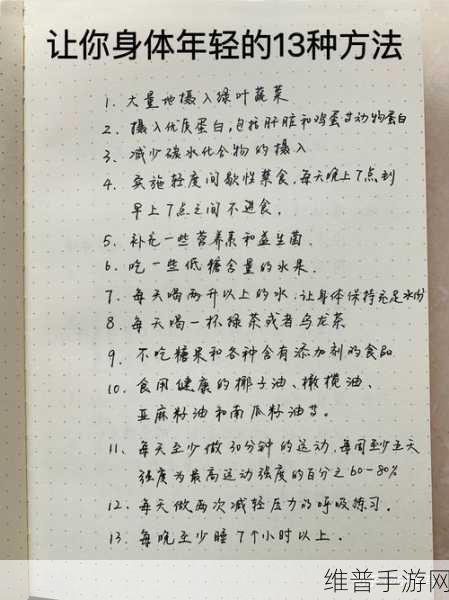 让你身体年轻的13种方法
1. 大量地摄入绿叶蔬菜
2. 摄入优质蛋白，包括肝脏和鸡蛋等动物蛋白
3. 减少碳水化合物的摄入
4. 实施轻度间歇性禁食，每天晚上7点到
早上7点之间不进食。
5. 补充一些营养素和益生菌.
6. 吃一些低糖含量的水果.
7. 每天喝两升以上的水，让身体保持充足水份
8. 每天喝一杯绿茶或者乌龙茶
9. 不吃糖果和各种含有添加剂的食品
10. 食用健康的椰子油、橄榄油、
亚麻籽油和南瓜籽油等。
11. 每天至少做30分钟的运动，每周至少五天
强度为最高运动强度的百分之60-80%
12. 每天做两次减轻压力的呼吸练习.
13. 每晚至少睡7个小时以上.
维普手游网